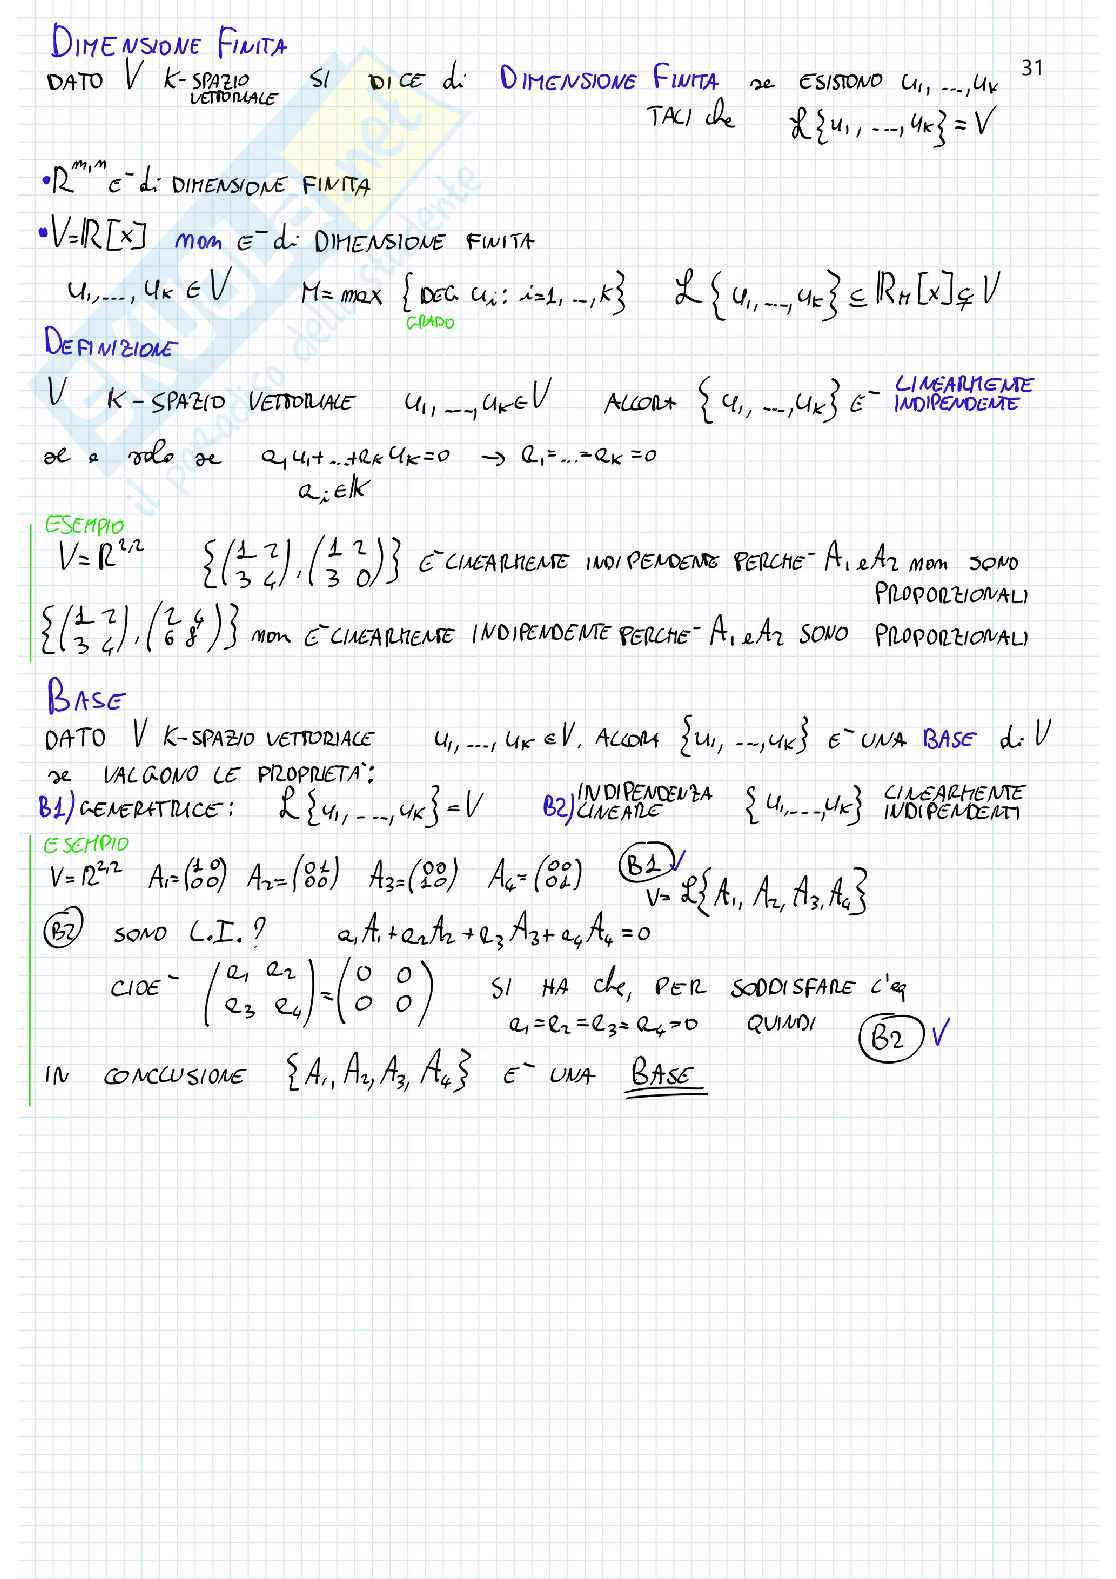 31
DIMENSIONE FINITA
DATO V K-SPAZIO VETTORIALE SI DICE di DIMENSIONE FINITA se ESISTONO u₁, ..., uₖ
TALI che ℒ{u₁, ..., uₖ} = V
• ℝᵐ,ⁿ E' di DIMENSIONE FINITA
• V=ℝ[x] non E' di DIMENSIONE FINITA
u₁, ..., uₖ ∈ V M = max {DEG uᵢ : i=1, .., k} ℒ{u₁, ..., uₖ} ⊆ ℝ_M[x] ⊊ V
GRADO
DEFINIZIONE
V K-SPAZIO VETTORIALE u₁, ..., uₖ ∈ V ALLORA {u₁, ..., uₖ} E' LINEARMENTE INDIPENDENTE
se e solo se a₁u₁+...+aₖuₖ=0 → a₁=...=aₖ=0
aᵢ∈K
ESEMPIO
V=ℝ²,² {(1 2 / 3 4), (1 2 / 3 0)} E' LINEARMENTE INDIPENDENTE PERCHE' A₁ e A₂ non SONO
PROPORZIONALI
{(1 2 / 3 4), (2 4 / 6 8)} non E' LINEARMENTE INDIPENDENTE PERCHE' A₁ e A₂ SONO PROPORZIONALI
BASE
DATO V K-SPAZIO VETTORIALE u₁, ..., uₖ ∈ V. ALLORA {u₁, ..., uₖ} E' UNA BASE di V
se VALGONO LE PROPRIETA':
B1) GENERATRICE: ℒ{u₁, ..., uₖ} = V B2) INDIPENDENZA LINEARE {u₁, ..., uₖ} LINEARMENTE INDIPENDENTI
ESEMPIO
V=ℝ²,² A₁=(1 0 / 0 0) A₂=(0 1 / 0 0) A₃=(0 0 / 1 0) A₄=(0 0 / 0 1) B1 ✓
V=ℒ{A₁, A₂, A₃, A₄}
B2 SONO L.I.? a₁A₁+a₂A₂+a₃A₃+a₄A₄=0
CIOE' (a₁ a₂ / a₃ a₄) = (0 0 / 0 0) SI HA che, PER SODDISFARE l'eq
a₁=a₂=a₃=a₄=0 QUINDI B2 ✓
IN CONCLUSIONE {A₁, A₂, A₃, A₄} E' UNA BASE
SKUOLA.net
il paradiso dello studente